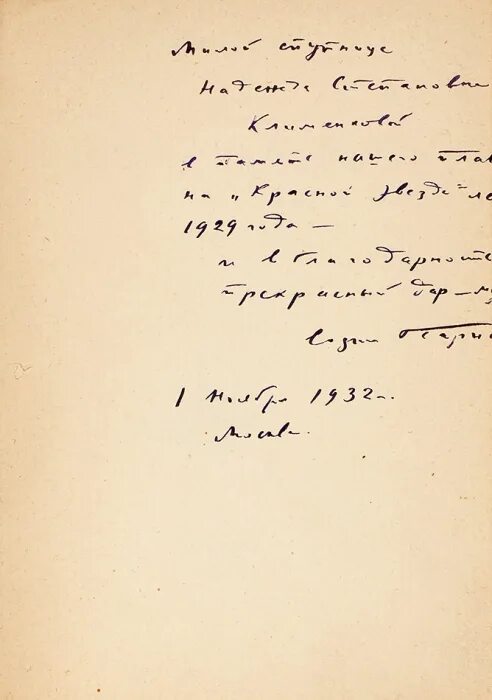 Милой спутнице
Надежде Степановне
Клименковой
в память нашего плав
на „Красной Звезде" ле
1929 года —
и в благодарность
прекрасный дар —
1 Ноября 1932 г.
Москва.